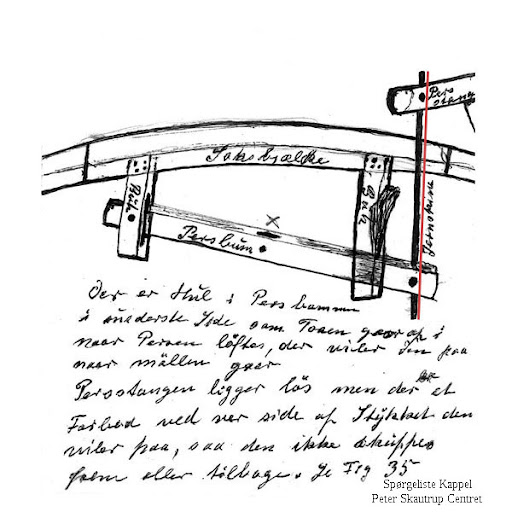 Pers
stang
Jernstiven
Buk
Buk
Persbum
X
Der er Hul i Persbummen
i underste Side som Tosen gaar op i
naar Persen löftes, der viler den paa
naar möllen gaar
Persstangen ligger lös men der er et
Forbud ved ver side af Stykket den
viler paa, saa den ikke skupper
frem eller tilbage. Se Fig 35
Spørgeliste Kappel
Peter Skautrup Centret